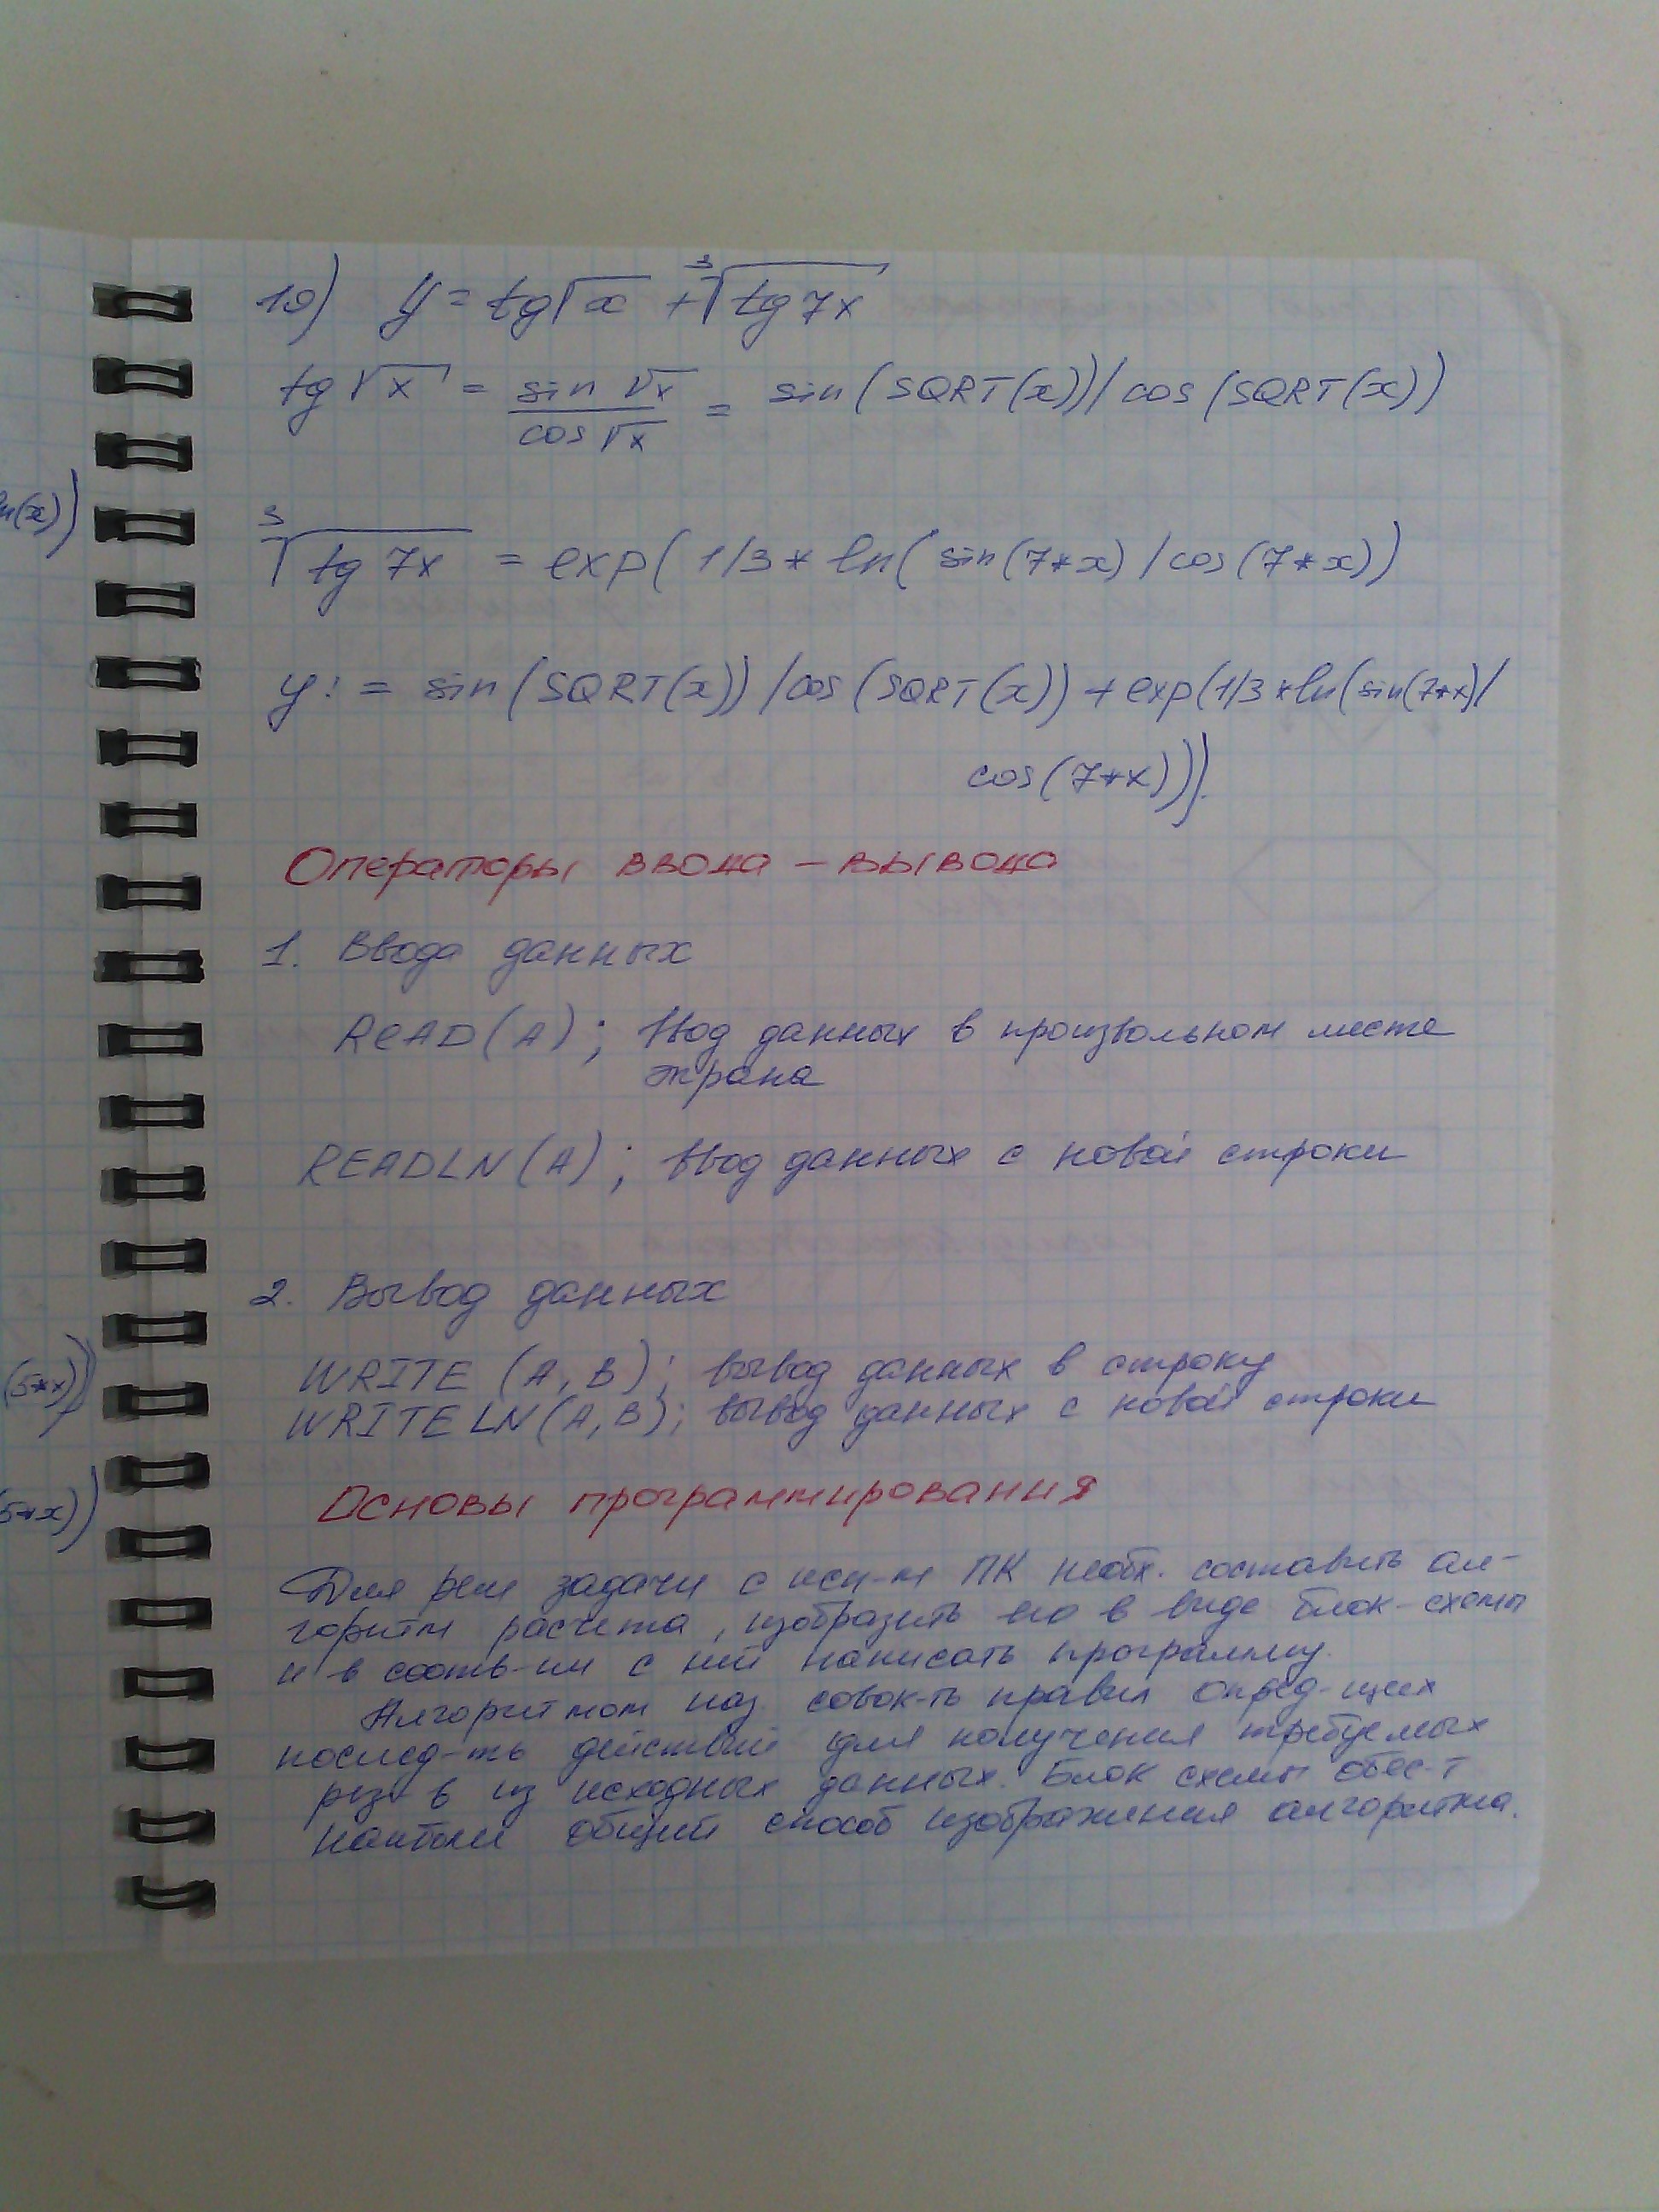 10) y = tg√x + ³√tg7x
tg√x = sin √x / cos √x = sin(SQRT(x))/cos(SQRT(x))
n(x))
³√tg 7x = exp(1/3*ln(sin(7*x)/cos(7*x))
y:= sin(SQRT(x))/cos(SQRT(x))+exp(1/3*ln(sin(7*x)/
cos(7*x))).
Операторы ввода – вывода
1. Ввода данных
READ(A); Ввод данных в произвольном месте
экрана
READLN(A); Ввод данных с новой строки
2. Вывод данных
(5*x))
WRITE (A, B); вывод данных в строку
WRITELN(A, B); вывод данных с новой строки
5*x))
Основы программирования
Для реш задачи с исп-м ПК необх. составить ал-
горитм расчета, изобразить его в виде блок-схемы
и в соотв-ии с ней написать программу.
Алгоритмом наз. совок-ть правил опред-щих
послед-ть действий для получения требуемых
рез-в из исходных данных. Блок схемы обес-т
наиболее общий способ изображения алгоритма.